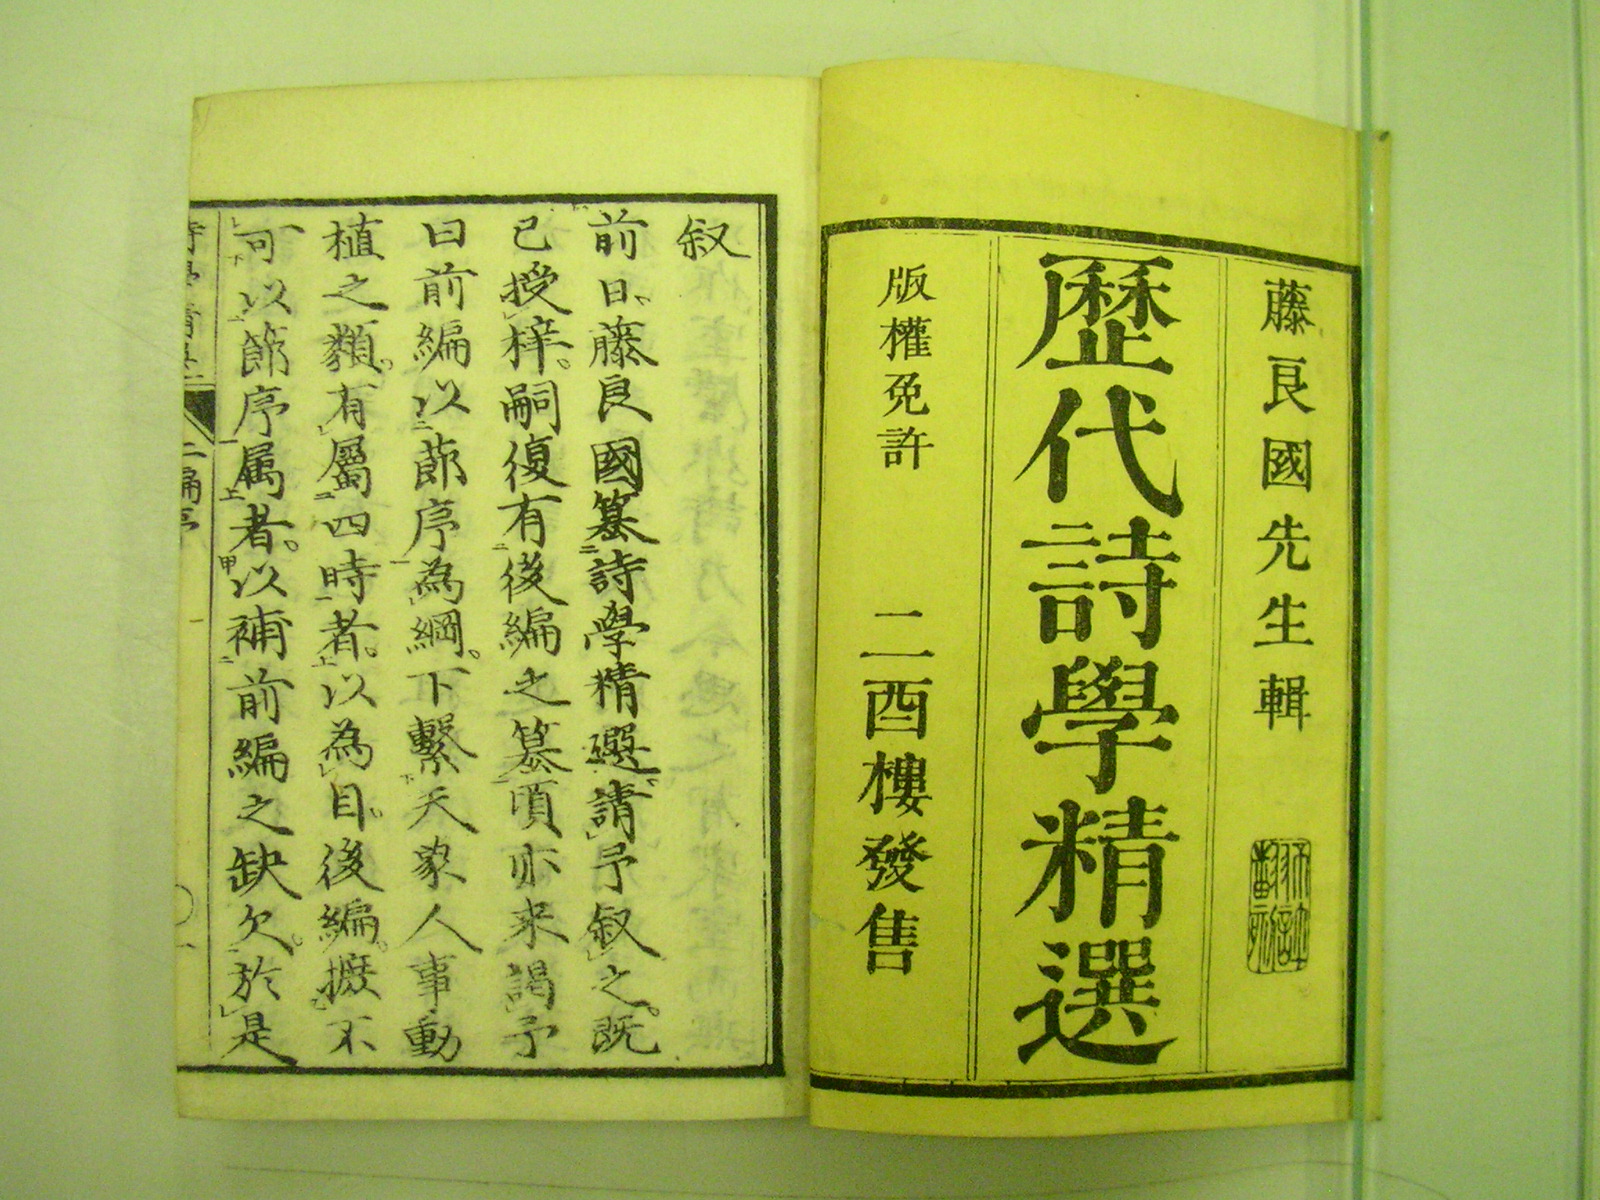 藤良國先生輯
歷代詩學精選
版權免許
二酉樓發售
叙
前日藤良國纂詩學精選請予叙之既
已授梓嗣復有後編之纂頃亦来謁予
曰前編以節序為綱下繫天象人事動
植之類有屬四時者以為目後編摭不
可以節序属者以補前編之缺欠於是
二編序